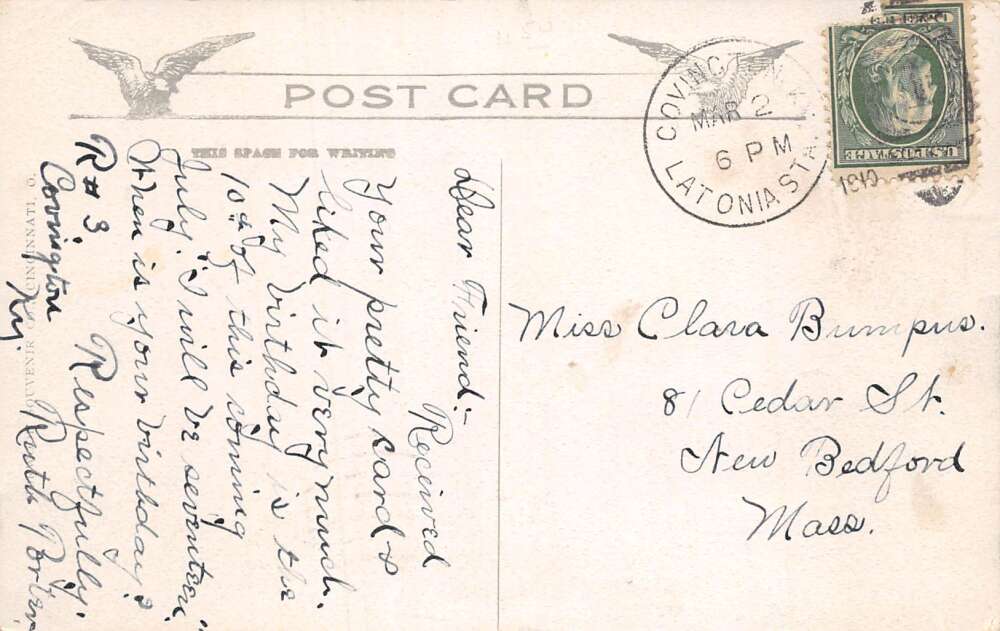 POST CARD
THIS SPACE FOR WRITING
COVINGT
MAR 2
6 PM
LATONIA STA
U.S. POSTAGE
Dear Friend:-
Received
Your pretty card &
liked it very much.
My birthday is the
10th of this coming
July. "I will be seventeen"
When is your birthday?
Respectfully,
Ruth Porter
R# 3
Covington
Ky.
Miss Clara Bumpus.
81 Cedar St.
New Bedford
Mass.
CINCINNATI, O.